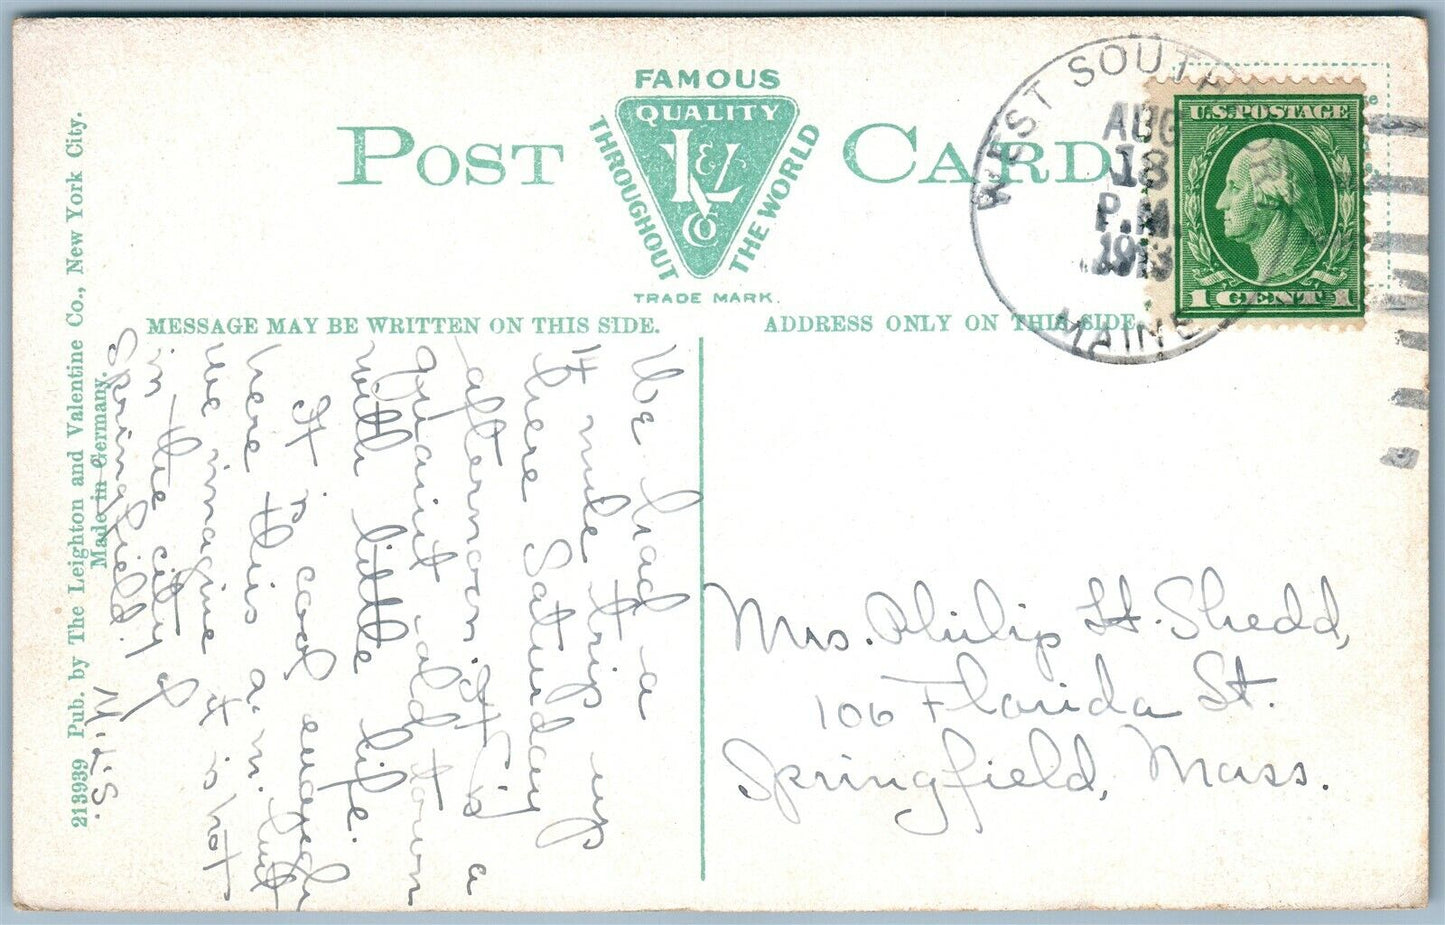 FAMOUS
QUALITY
L & V Co
THROUGHOUT
THE WORLD
TRADE MARK.
POST CARD
WEST SOUTHPORT
AUG
18
P.M
1913
MAINE
U.S. POSTAGE
1 CENT 1
MESSAGE MAY BE WRITTEN ON THIS SIDE.
ADDRESS ONLY ON THIS SIDE.
213939 Pub. by The Leighton and Valentine Co., New York City.
Made in Germany.
We had a
14 mile trip up
here Saturday
afternoon. It is a
quaint old town
with little life.
It is cool enough
here this a.m. but
we imagine it is hot
in the city of
Springfield.
M.L.S.
Mrs. Philip H. Shedd,
106 Florida St.
Springfield, Mass.